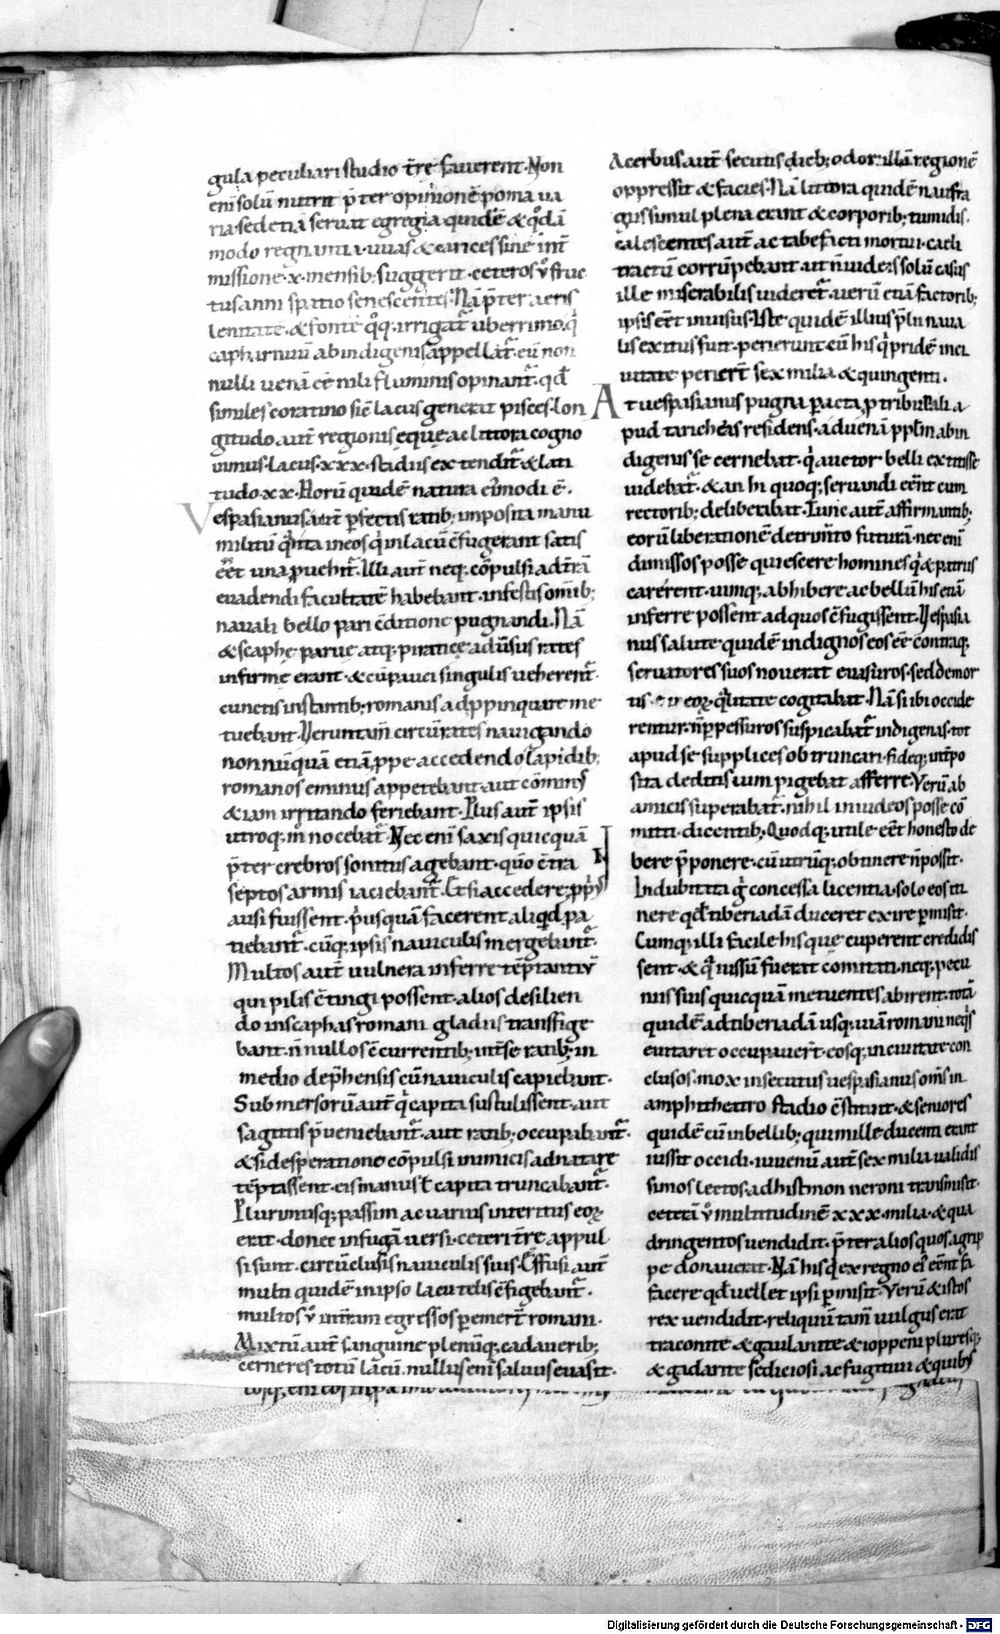 gula peculiari studio t̄rę fauerent. Non
eni̅ solu̅ nutrit p̄ter opinione̅ poma ua
ria. sed etia̅ seruat egregia quide̅ & qda̅
modo regnantia. uuas & carices sine int̄
missione. x. mensib; suggerit. ceteros v̊ fruc
tus anni spatio senescentes. Na̅ p̄ter aeris
lenitate̅. & fonte qq. irrigat᷑ uberrimo. q̇
capharnau̅ ab indigenis appellat᷑. eu̅ non
nulli uena̅ ee̅ nili fluminis opinant᷑. qd̄
similes coratino sic̄ lacus generat pisces. lon
gitudo aut̄ regionis eque ac littora cogno
uimus. lacus. xxx. stadiis extendit᷑. & lati
tudo. xx. Horu̅ quide̅ natura ei᷒modi ē.
Vespasianus aut̄ p̲fectis ratib; imposita manu
militu̅ qnta in eos q̇ in lacu̅ c̄fugerant satis
eēt una puehit᷑. Illi aut̄ neq; co̅pulsi ad t̄ra̅
euadendi facultate̅ habebant. infestis om̄ib;
nauali bello pari c̄ditione pugnandi. Na̅
& scaphe parue atq; piratice aduersus rates
infirme erant. & cu̅ pauci singulis ueherent᷑.
cunctis instantib; romanis adppinquare me
tuebant. Verunta̅n circu̅ rates nauigando
nonnu̅qua̅ etia̅ ppe accedendo lapidib;
romanos eminus appetebant. aut co̅min᷒
& iam irritando feriebant. Plus aut̄ ipsis
utroq; m̊ nocebat᷑. Nec eni̅ saxis quicqua̅
p̄ter crebros sonitus agebant. qn̊ c̄tra
septos armis iaciebant᷑. Et si accedere ppi᷒
ausi fuissent. p̊usqua̅ facerent aliqd pa
tiebant᷑. cu̅q; ipsis nauiculis mergebant᷑.
Multos aut̄ uulnera inferre te̅ptantiu̅
qui pilis c̄tingi possent. alios desilien
do in scaphas romani gladiis transfige
bant. n̄nullos c̄currentib; int̄ se ratib; in
medio dep̄hensis cu̅ nauiculis capiebant.
Submersoru̅ aut̄ q̇ capita sustulissent. aut
sagittis p̄ueniebant᷑. aut ratib; occupabant᷑.
& si desperatione co̅pulsi inimicis adnatare
te̅ptassent. eis manus ł capita truncabant᷑.
Plurimusq; passim ac uarius interitus eoꝝ
erat. donec in fuga̅ uersi. ceteri t̄rę appul
si sunt. circu̅clusis nauiculis suis. Effusi aut̄
multi quide̅ in ipso lacu telis c̄figebant᷑.
multos v̊ in t̄ram egressos peremert̄ romani.
Mixtu̅ aut̄ sanguine plenu̅q; cadauerib;
cerneres totu̅ lacu̅. nullus eni̅ saluus euasit.
Acerbus aut̄ secutis dieb; odor illa̅ regione̅
oppressit & facies. Na̅ littora quide̅ naufra
giis simul plena erant & corporib; tumidis.
calescentes aut̄ ac tabefacti mortui. caeli
tractu̅ corru̅pebant. ut n̄ iudeis solu̅ casus
ille miserabilis uideret᷑. ueru̅ etia̅ factorib;
ipsis eēt inuisus. Iste quide̅ illius p̄lii naua
lis exitus fuit. perierunt cu̅ his q̇ pride̅ in ci
uitate periert̄ sex milia & quingenti.
At uespasianus pugna pacta. p tribunali a
pud taricheas residens. aduena̅ pplm ab in
digenis secernebat. q̇ auctor belli extitisse
uidebat᷑. & an hi quoq; seruandi eēnt cum
rectorib; deliberabat. Tunc aut̄ affirmantib;
eoru̅ liberatione̅ detrimto futura̅. nec eni̅
dimissos posse quiescere homines q̇ & patriis
carerent. uimq; adhibere ac bellu̅ his etia̅
inferre possent ad quos c̄fugissent. Vespasia
nus salute quide̅ indignos eos ee̅ contraq;
seruatores suos nouerat euasuros. sed de mor
tis eoꝝ qlitate cogitabat. Na̅ si ibi occide
rentur. n̄ ppessuros suspicabat᷑ indigenas. tot
apud se supplices obtruncari. fideq; int̄po
sita deditis uim pigebat afferre. Veru̅ ab
amicis superabat᷑. nihil in iudeos posse co̅
mitti. dicentib; Quodq; utile eēt honesto de
bere p̄ponere. cu̅ utru̅q; obtinere n̄ possit.
Indubitata g̊ concessa licentia. solo eos iti
nere qd̄ tiberiada̅ duceret exire pmisit.
Cumq; illi facile his que cuperent credidis
sent. & q̊ iussu̅ fuerat comitati. neq; pecu
niis suis quicqua̅ metuentes abirent. tota̅
quide̅ ad tiberiada̅ usq; uia̅ romani neq̇s
euitaret occupauert̄. eosq; in ciuitate con
clusos. mox insecutus uespasianus om̄s in
amphitheatro stadio c̄stituit. & seniores
quide̅ cu̅ inbellib; qui mille ducenti erant
iussit occidi. iuuenu̅ aut̄ sex milia ualidis
simos lectos. ad histmon neroni transmisit.
cetera̅ v̊ multitudine̅ xxx. milia. & qua
dringentos uendidit. p̄ter alios quos agrip
pe donauerat. Na̅ his q̇ ex regno ei᷒ eēnt fa
facere qd̄ uellet ipsi pmisit. Veru̅ & istos
rex uendidit. reliquu̅ tam̄ uulgus erat
traconite & gaulanite & ioppeni pluresq;
& gadarite sediciosi ac fugitiui & quib᷒